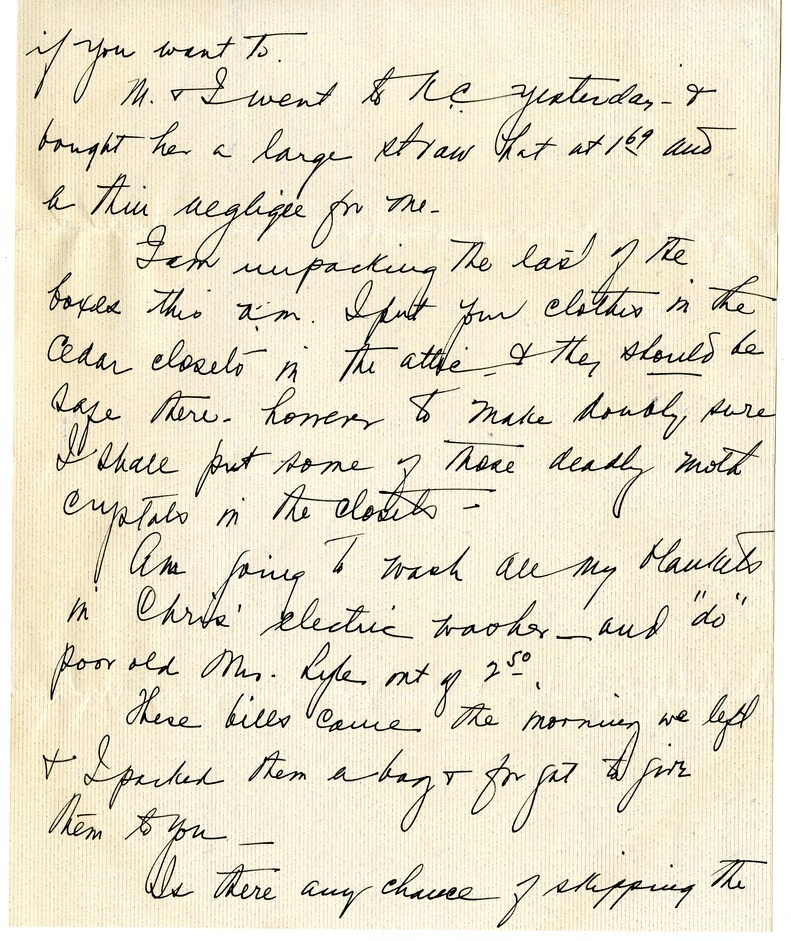 if you want to.
M. & I went to K.C. yesterday - &
bought her a large straw hat at 1 69 and
a thin negligee for me -
I am unpacking the last of the
boxes this a.m. I put your clothes in the
cedar closets in the attic & they should be
safe there - however to make doubly sure
I shall put some of those deadly moth
crystals in the closets -
Am going to wash all my blankets
in Chris' electric washer - and "do"
poor old Mrs. Lyle out of 2 50.
These bills came the morning we left
& I packed them a bag & forgot to give
them to you —
Is there any chance of skipping the